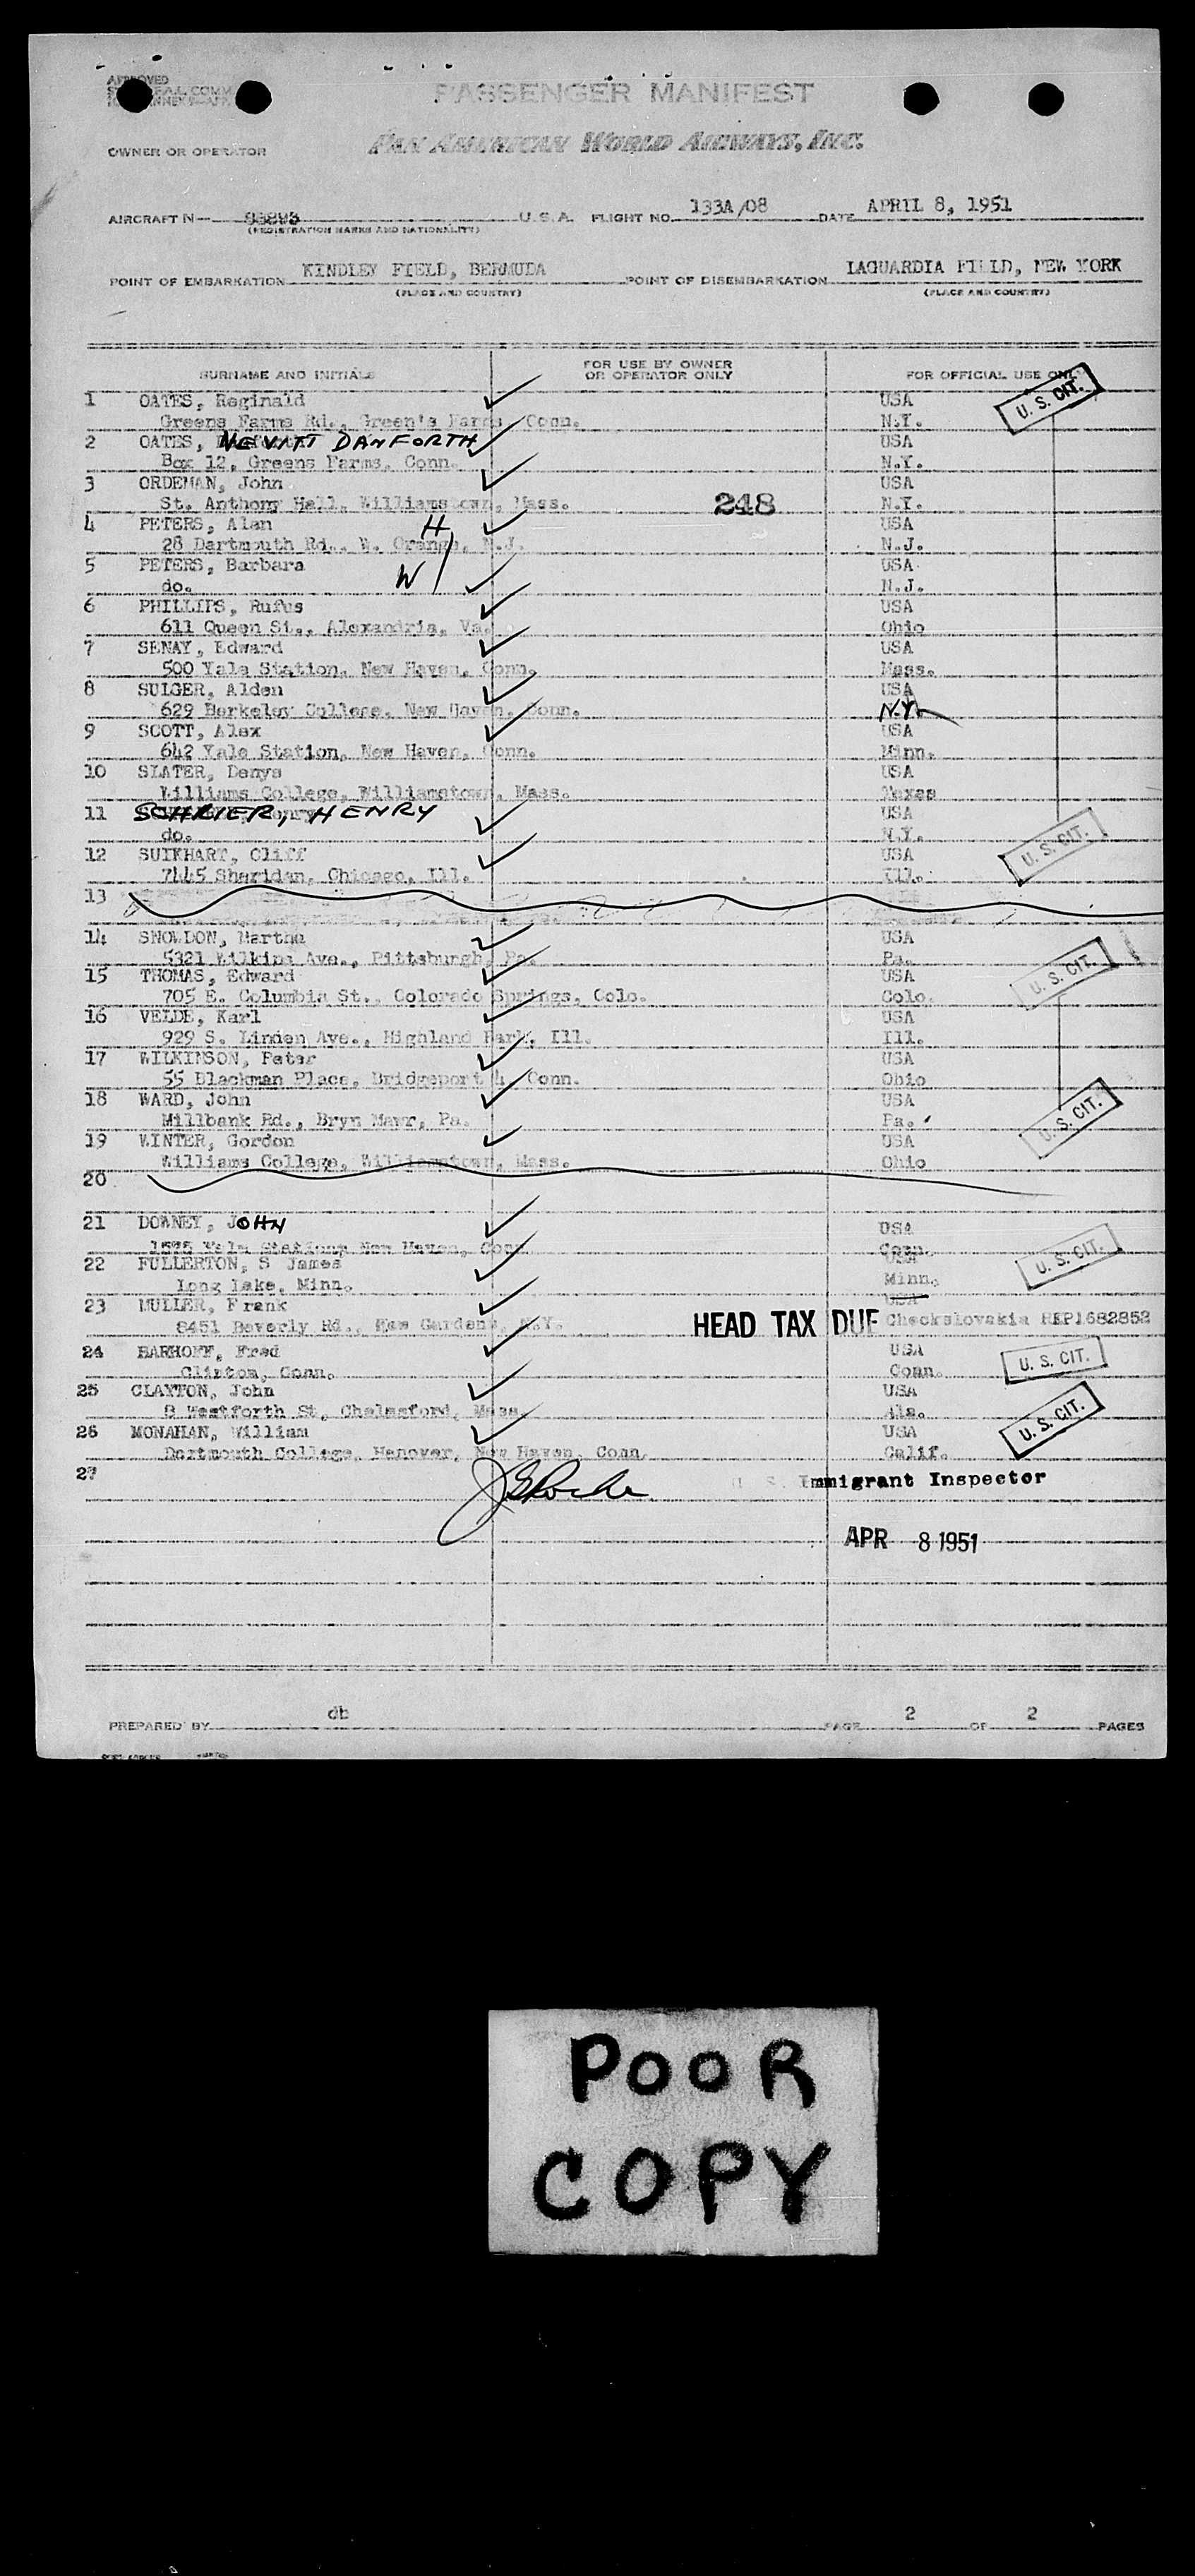 APPROVED
PASSENGER MANIFEST
OWNER OR OPERATOR PAN AMERICAN WORLD AIRWAYS, INC.
AIRCRAFT N— U.S.A. FLIGHT NO. 133A/08 DATE APRIL 8, 1951
(REGISTRATION MARKS AND NATIONALITY)
POINT OF EMBARKATION KINDLEY FIELD, BERMUDA POINT OF DISEMBARKATION LAGUARDIA FIELD, NEW YORK
(PLACE AND COUNTRY) (PLACE AND COUNTRY)
SURNAME AND INITIALS FOR USE BY OWNER OR OPERATOR ONLY FOR OFFICIAL USE ONLY
1 OATES, Reginald USA U. S. CIT.
Greens Farms Rd., Green's Farms, Conn. N.Y.
2 OATES, NEVITT DANFORTH USA
Box 12, Greens Farms, Conn. N.Y.
3 ORDEMAN, John USA
St. Anthony Hall, Williamstown, Mass. 248 N.Y.
4 PETERS, Alan H USA
28 Dartmouth Rd., W. Orange, N.J. N.J.
5 PETERS, Barbara W USA
do. N.J.
6 PHILLIPS, Rufus USA
611 Queen St., Alexandria, Va. Ohio
7 SENAY, Edward USA
500 Yale Station, New Haven, Conn. Mass.
8 SULGER, Alden USA
629 Berkeley College, New Haven, Conn. N.Y.
9 SCOTT, Alex USA
642 Yale Station, New Haven, Conn. Minn.
10 SLATER, Denys USA
Williams College, Williamstown, Mass. Texas
11 SCHRIER, HENRY USA
do. N.Y. U. S. CIT.
12 SUIKHART, Cliff USA
7445 Sheridan, Chicago, Ill. Ill.
13
14 SNOWDON, Martha USA
5321 Wilkins Ave., Pittsburgh, Pa. Pa. U. S. CIT.
15 THOMAS, Edward USA
705 E. Columbia St., Colorado Springs, Colo. Colo.
16 VELDE, Karl USA
929 S. Linden Ave., Highland Park, Ill. Ill.
17 WILKINSON, Peter USA
55 Blackman Place, Bridgeport 4, Conn. Ohio
18 WARD, John USA
Millbank Rd., Bryn Mawr, Pa. Pa. U. S. CIT.
19 WINTER, Gordon USA
Williams College, Williamstown, Mass. Ohio
20
21 DOWNEY, JOHN USA
Yale Station, New Haven, Conn. Conn.
22 FULLERTON, S James USA U. S. CIT.
Long Lake, Minn. Minn.
23 MULLER, Frank USA
8451 Beverly Rd., Kew Gardens, N.Y. HEAD TAX DUE Checkslovakia REP1682852
24 BARHOFF, Fred USA U. S. CIT.
Clinton, Conn. Conn.
25 CLAYTON, John USA
8 Westforth St, Chelmsford, Mass. Ala. U. S. CIT.
26 MONAHAN, William USA
Dartmouth College, Hanover, New Haven, Conn. Calif.
27 U. S. Immigrant Inspector
APR 8 1951
PREPARED BY db PAGE 2 OF 2 PAGES
POOR
COPY